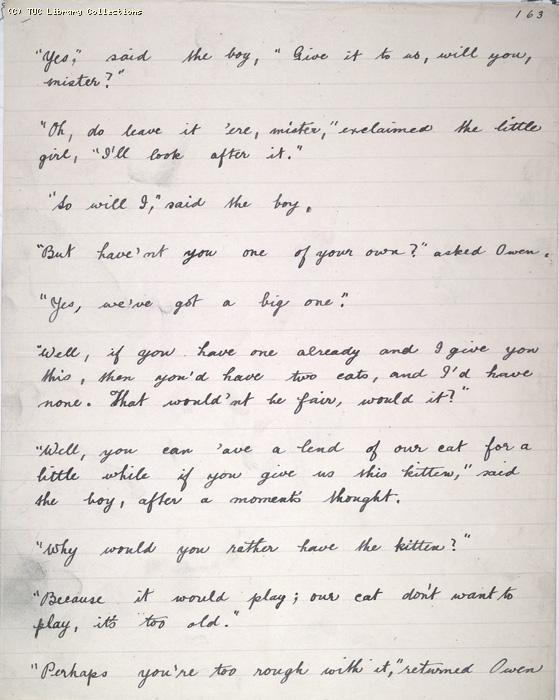 (C) TUC Library Collections
163
"Yes," said the boy, "Give it to us, will you,
mister?"
"Oh, do leave it 'ere, mister," exclaimed the little
girl, "I'll look after it."
"So will I," said the boy.
"But have'nt you one of your own?" asked Owen.
"Yes, we've got a big one".
"Well, if you have one already and I give you
this, then you'd have two cats, and I'd have
none. That would'nt be fair, would it?"
"Well, you can 'ave a lend of our cat for a
little while if you give us this kitten," said
the boy, after a moment's thought.
"Why would you rather have the kitten?"
"Because it would play; our cat don't want to
play, it's too old."
"Perhaps you're too rough with it," returned Owen